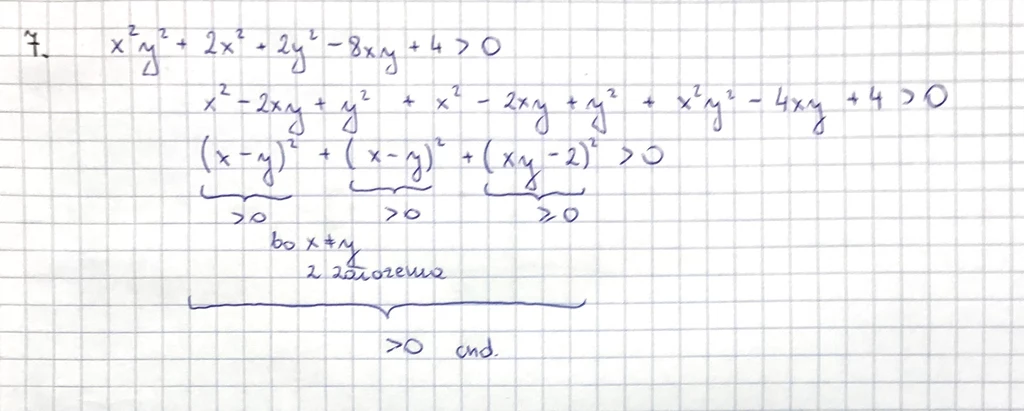 7. x²y² + 2x² + 2y² - 8xy + 4 > 0
x² - 2xy + y² + x² - 2xy + y² + x²y² - 4xy + 4 > 0
(x - y)² + (x - y)² + (xy - 2)² > 0
>0 >0 ⩾0
bo x ≠ y
z założenia
>0 cnd.